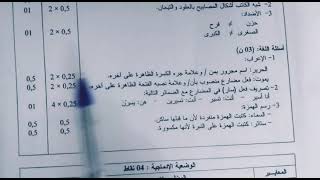 2- شبه الكاتب أشكال المصابيح بالعقود والتيجان.
01 2 × 0,5
3- الأضداد:
حزن ≠ فرح
الصغرى ≠ الكبرى
01 2 × 0,5
أسئلة اللغة: (03 ن)
1- الإعراب:
الحرير: اسم مجرور بمن / وعلامة جره الكسرة الظاهرة على آخره.
0,5 2 × 0,25
يموت: فعل مضارع منصوب بأن / وعلامة نصبه الفتحة الظاهرة على آخره.
0,5 2 × 0,25
2- تصريف فعل (سار) في المضارع مع الضمائر التالية:
أنا أسير - أنت: تسيرين - هن: يسرن
01 4 × 0,25
3- رسم الهمزة:
- السماء: كتبت الهمزة منفردة لأن ما قبلها ساكن.
0,5 0,5
كتبت الهمزة على النبرة لأنها مكسورة.
0,5 0,5
الوضعية الإدماجية: 04 نقاط
المعايير